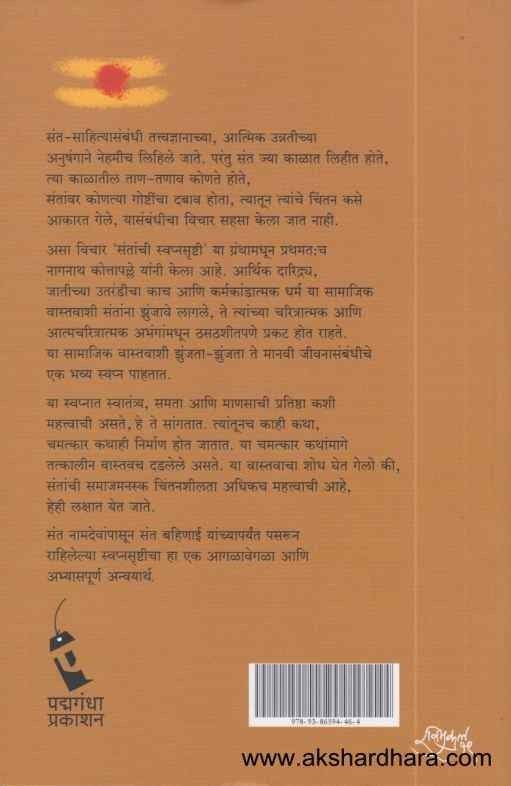 संत-साहित्यासंबंधी तत्त्वज्ञानाच्या, आत्मिक उन्नतीच्या
अनुषंगाने नेहमीच लिहिले जाते. परंतु संत ज्या काळात लिहीत होते,
त्या काळातील ताण-तणाव कोणते होते,
संतांवर कोणत्या गोष्टींचा दबाव होता, त्यातून त्यांचे चिंतन कसे
आकारत गेले, यासंबंधीचा विचार सहसा केला जात नाही.
असा विचार 'संतांची स्वप्नसृष्टी' या ग्रंथामधून प्रथमत:च
नागनाथ कोत्तापल्ले यांनी केला आहे. आर्थिक दारिद्र्य,
जातीच्या उतरंडीचा काच आणि कर्मकांडात्मक धर्म या सामाजिक
वास्तवाशी संतांना झुंजावे लागले, ते त्यांच्या चरित्रात्मक आणि
आत्मचरित्रात्मक अभंगांमधून ठसठशीतपणे प्रकट होत राहते.
या सामाजिक वास्तवाशी झुंजता-झुंजता ते मानवी जीवनासंबंधीचे
एक भव्य स्वप्न पाहतात.
या स्वप्नात स्वातंत्र्य, समता आणि माणसाची प्रतिष्ठा कशी
महत्त्वाची असते, हे ते सांगतात. त्यांतूनच काही कथा,
चमत्कार कथाही निर्माण होत जातात. या चमत्कार कथांमागे
तत्कालीन वास्तवच दडलेले असते. या वास्तवाचा शोध घेत गेलो की,
संतांची समाजमनस्क चिंतनशीलता अधिकच महत्त्वाची आहे,
हेही लक्षात येत जाते.
संत नामदेवांपासून संत बहिणाई यांच्यापर्यंत पसरून
राहिलेल्या स्वप्नसृष्टीचा हा एक आगळावेगळा आणि
अभ्यासपूर्ण अन्वयार्थ.
पद्मगंधा
प्रकाशन
978-93-86594-46-4
www.akshardhara.com